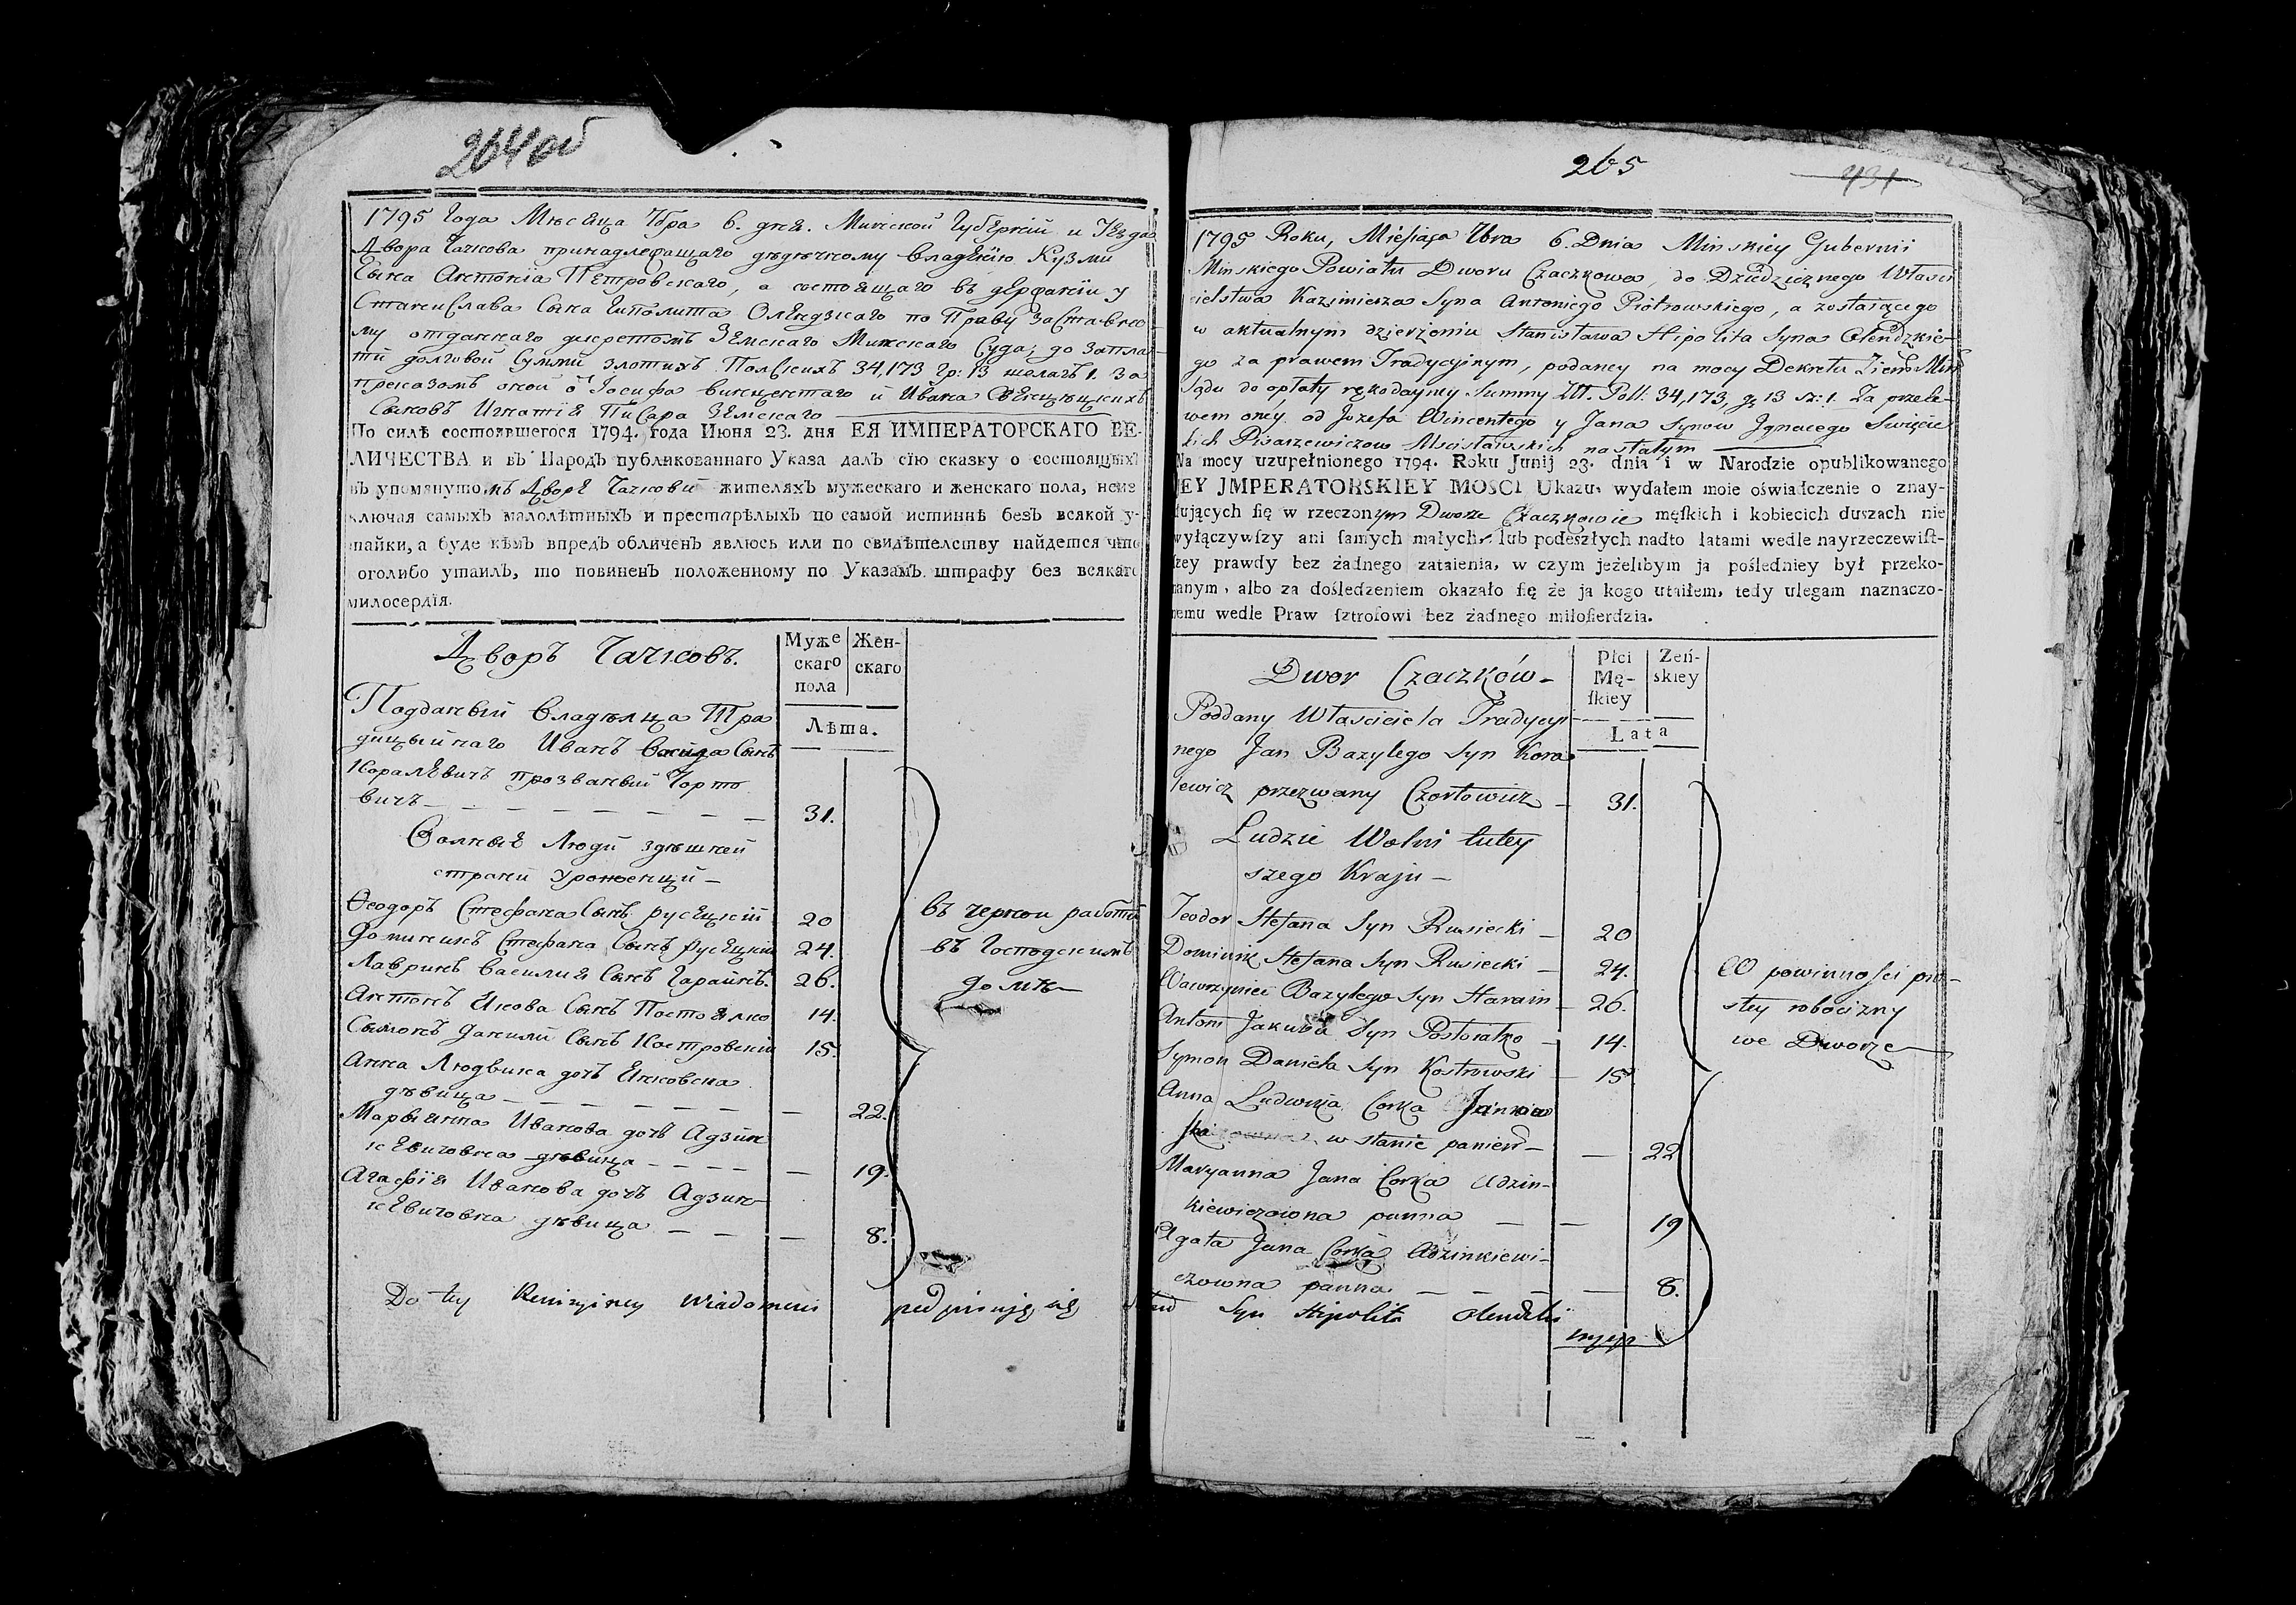 264 об
1795 Года Мѣсяца 7бра 6. дня. Минской Губерніи и Уезда
Двора Чачкова принадлежащаго дѣдичному владѣнію Кузми
Сына Антонія Петровскаго, а состоящаго въ держаніи у
Станислава Сына Гиполита Олендзкаго по Праву
му отданнаго декретомъ Земскаго Минскаго Суда, до запла-
ти долговой Суммы злотихъ Полскихъ 34,173 гр: 13 шелягъ 1. За
оной о Іосифа Винцентаго и Ивана
Сыновъ Игнатія Писара Земскаго
По силѣ состоявшегося 1794. года Июня 23. дня ЕЯ ИМПЕРАТОРСКАГО ВЕ-
ЛИЧЕСТВА и въ Народъ публикованнаго Указа далъ сїю сказку о состоящихъ
въ упомянутомъ Дворѣ Чачкови жителяхъ мужескаго и женскаго пола, неиз
ключая самыхъ малолѣтныхъ и престарѣлыхъ по самой истиннѣ безъ всякой у-
тайки, а буде кѣмъ впредь обличенъ явлюсь или по свидѣтелству найдется что
оголибо утаилъ, то повиненъ положенному по Указамъ штрафу без всякаго
милосердїя.
Дворъ Чачковъ.
Муже скаго пола
Жен- скаго
Лѣта.
Подданый владѣлца Тра
дицыйнаго Иванъ Васила Сынъ
Каралевичъ прозваный Чорто
вичъ 31.
Волные Люди здѣшней
страни Уроженци
Феодоръ Стефана Сынъ Русецкій 20
Доминикъ Стефана Сынъ Русецкій 24.
Лавринъ Василия Сынъ Гарайнъ. 26.
Антонъ Якова Сынъ Постоялко 14.
Сымонъ Данили Сынъ Костровскій 15.
въ черной работѣ
въ Господскимъ
домѣ
Анна Людвика дочъ Янковска
дѣвица 22.
Марыянна Иванова дочъ Адзин
кевичовна дѣвица 19.
Агафія Иванова дочъ Адзин
кевичовна дѣвица 8.
Do tey Rewizyiney Wiadomosci podpisuję się
265
431
1795 Roku, Miesiąca 7bra 6. Dnia Minskiey Gubernii
Minskiego Powiatu Dworu Czaczkowa, do Dziedzicznego Własci
cielstwa Kazimierza Syna Antoniego Piotrowskiego, a zostaiącego
w aktualnym dzierzeniu Stanisława Hipolita Syna Olendzkie-
go za prawem Tradycyinym, podaney na mocy Dekretu Ziem Min
Sądu do opłaty rękodayney Summy Zł. Poll: 34,173, g 13 sz: 1. Za przele-
wem oney od Jozefa Wincentego y Jana Synow Jgnacego Swięcic
kich Pisarzewiczow Mscisławskich nastałym
Na mocy uzupełnionego 1794. Roku Junij 23. dnia i w Narodzie opublikowanego
JEY JMPERATORSKIEY MOSCI Ukazu, wydałem moie oświadczenie o znay-
duiących się w rzeczonym Dworze Czaczkowie męſkich i kobiecich duszach nie
wyłączywſzy ani ſamych małych, lub podeszłych nadto latami wedle nayrzeczewiſt-
ſzey prawdy bez żadnego zataienia, w czym jeżelibym ja pośledniey był przeko-
nanym, albo za dośledzeniem okazało ſię że ja kogo utaiłem, tedy ulegam naznaczo-
nemu wedle Praw ſztrofowi bez żadnego miłoſierdzia.
Dwor Czaczków
Płci Mę- ſkiey
Zeń- skiey
Lata
Poddany Własciciela Tradycyi
nego Jan Bazylego Syn Kora
lewicz przezwany Czortowicz 31.
Ludzie Wolni tutey
szego Kraju
Teodor Stefana Syn Rusiecki 20
Dominik Stefana Syn Rusiecki 24.
Wawrzyniec Bazylego Syn Harain 26.
Antoni Jakuba Syn Postoiałko 14.
Symon Daniela Syn Kostrowski 15
W powinności pro-
stey robocizny
we Dworze
Anna Ludwika Corka Jankow
ska w stanie panień 22
Maryanna Jana Corka Adzin-
kiewiczowna panna 19
Agata Jana Corka Adzinkiewi-
czowna panna 8.
Syn Hipolita Olendzki